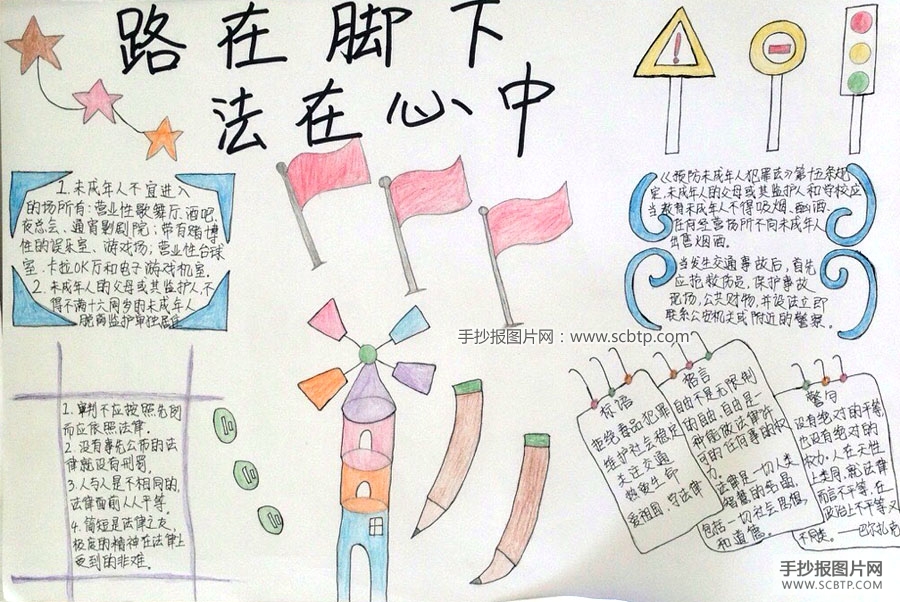 路在脚下
法在心中
1.未成年人不宜进入
的场所有:营业性歌舞厅.酒吧.
夜总会、通宵影剧院;带有赌博
性的娱乐室、游戏场;营业性台球
室、卡拉OK厅和电子游戏机室。
2.未成年人的父母或其监护人,不
得不满十六周岁的未成年人
脱离监护单独居住
《预防未成年人犯罪法》第十五条规
定,未成年人的父母或其监护人和学校应
当教育未成年人不得吸烟、酗酒.
任何经营场所不向未成年人
出售烟酒。
当发生交通事故后,首先
应抢救伤员,保护事故
现场,公共财物,并设法立即
联系公安机关或附近的警察。
手抄报图片网:www.scbtp.com
1.审判不应按照先例
而应依照法律。
2.没有事先公布的法
律就没有刑罚。
3.人与人是不相同的,
法律面前人人平等。
4.简短是法律之友,
极度的精神在法律上
受到的非难。
标语
拒绝毒品犯罪
维护社会稳定
关注交通
热爱生命
爱祖国.守法律
格言
自由不是无限制
的自由,自由是一
种能做法律许
可的任何事的权
力。
法律是一切人类
智慧的结晶,
包括一切社会思想
和道德。
警句
没有绝对的平等,
也没有绝对的
权力.人在天性
上类同,就法律
而言不平等,在
政治上不平等又
不同类。——巴尔扎克
手抄报图片网
WWW.SCBTP.COM